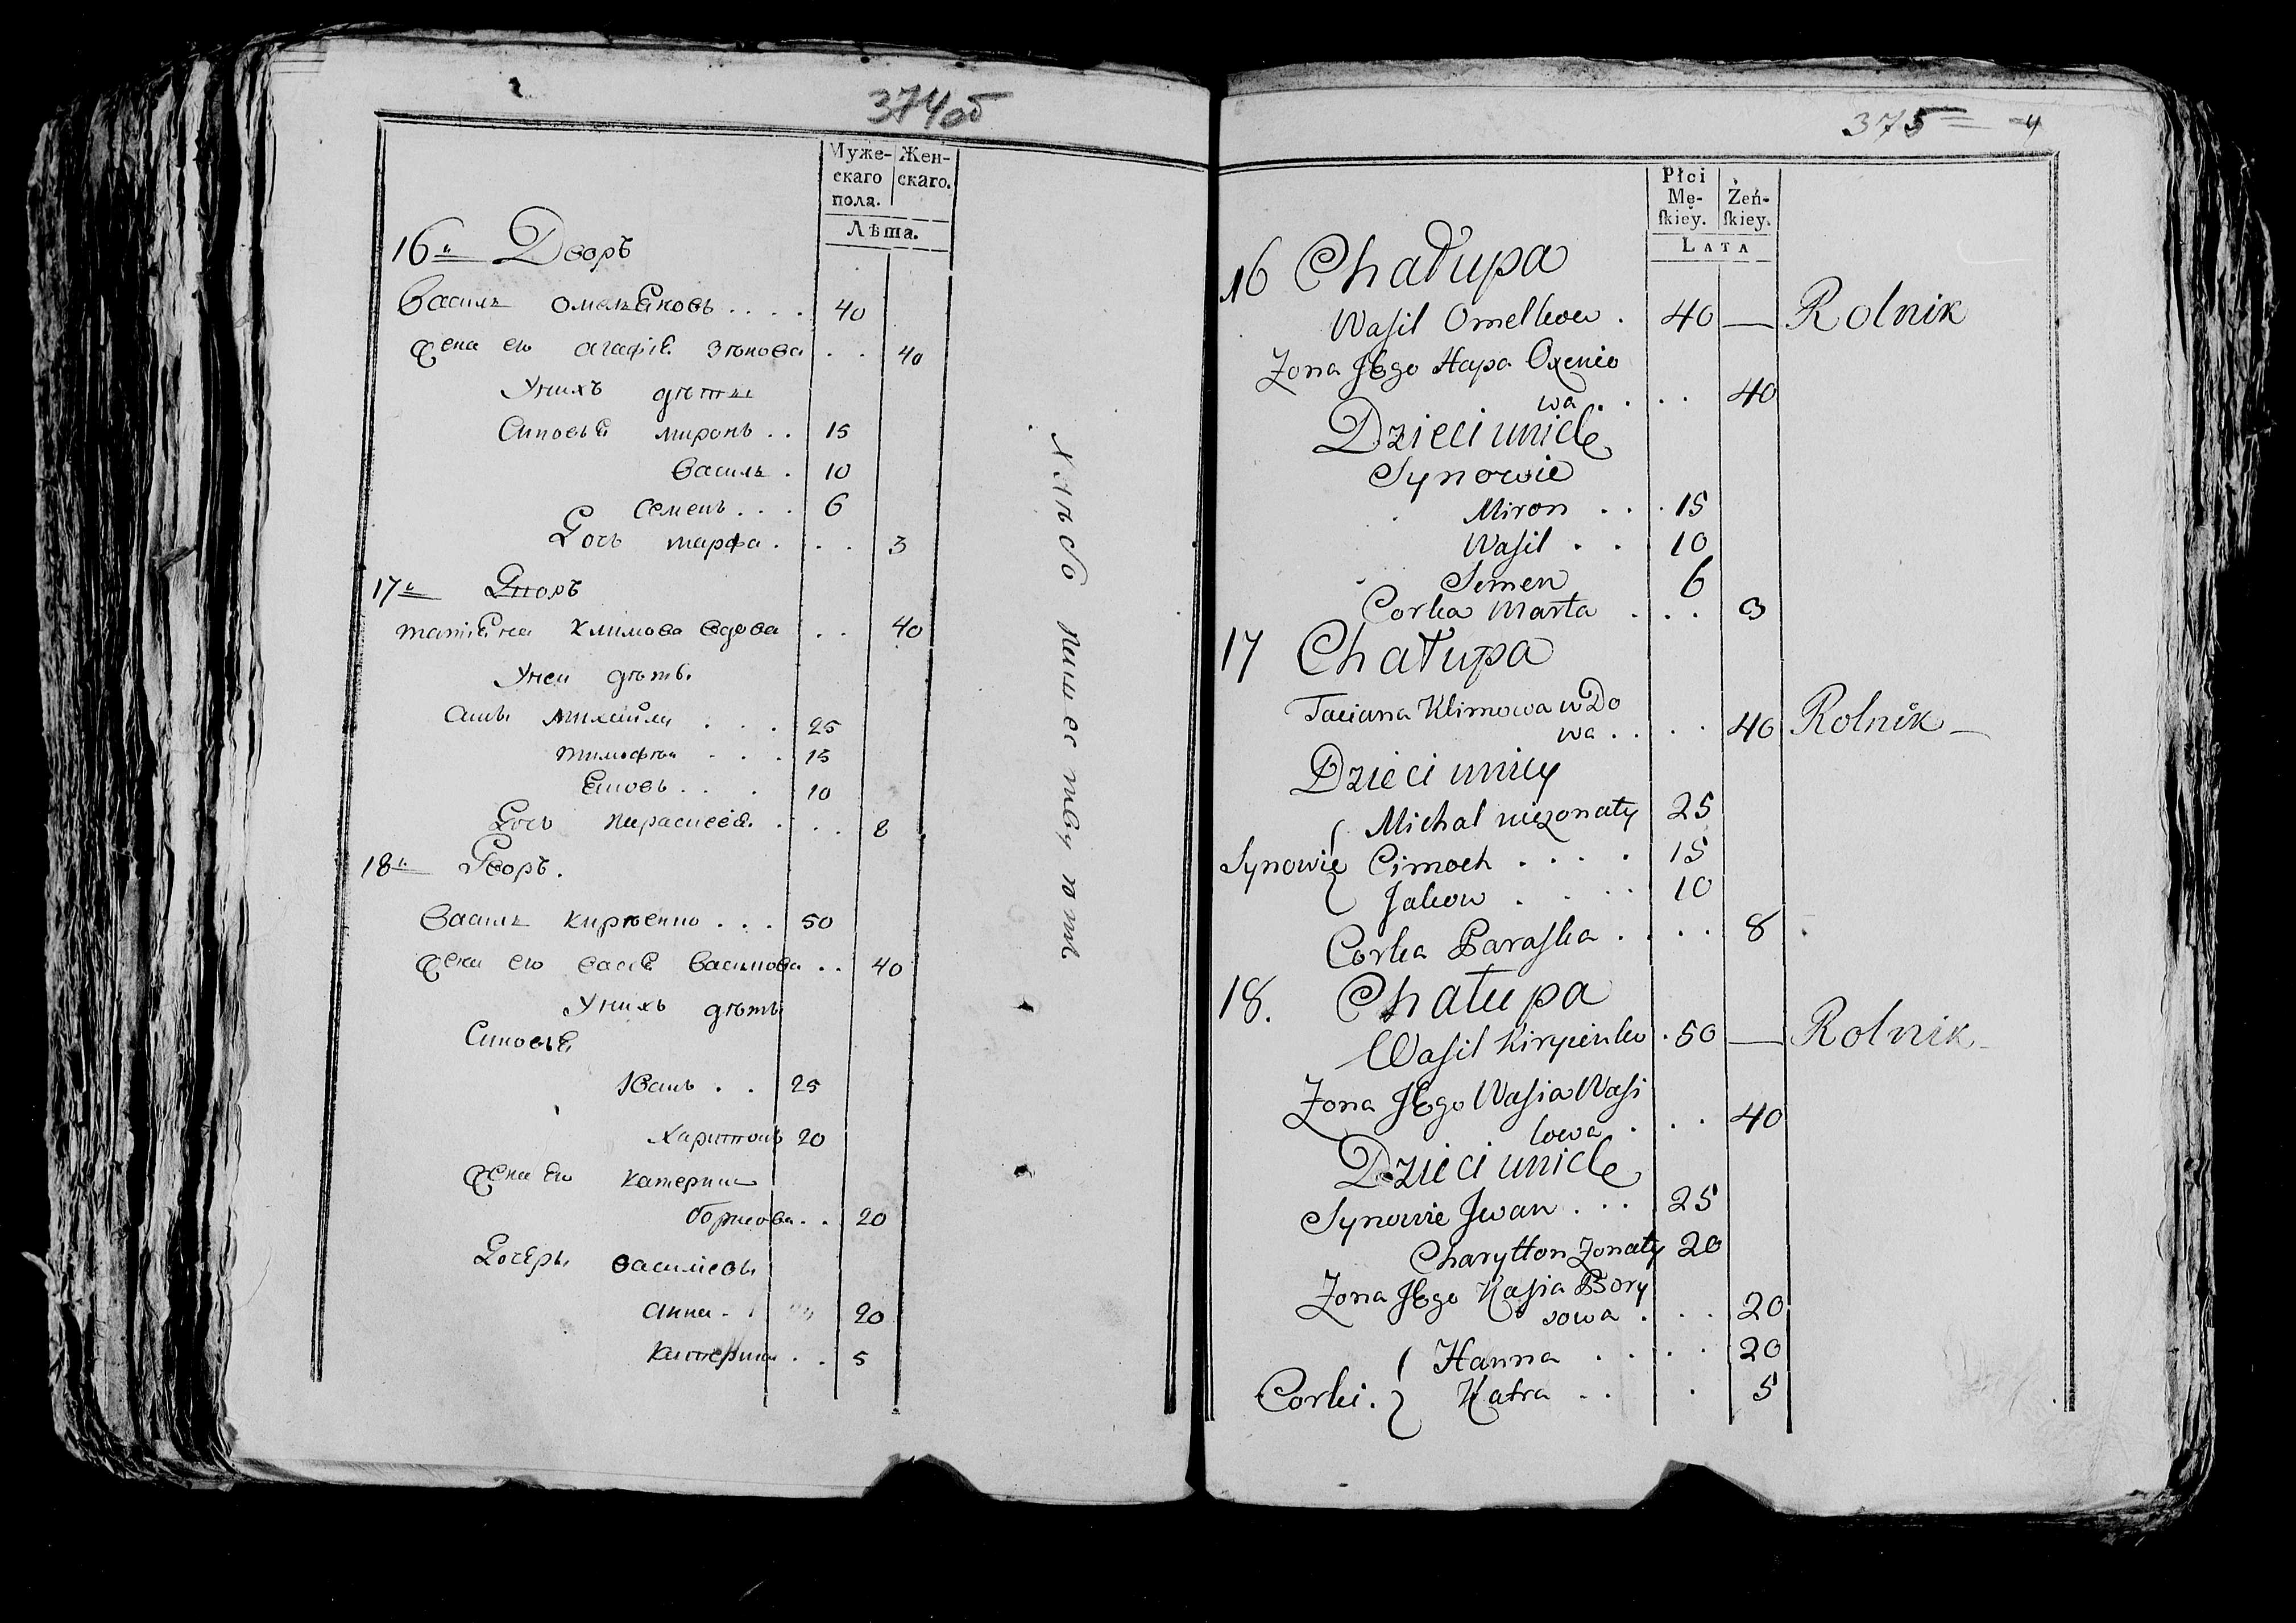 374об
Муже- Жен-
скаго скаго.
пола.
Лѣта.
16й Дворъ
Василь омельяновъ . . . . 40
жена ею агафія зѣнова . . 40
Унихъ дѣти
Синовья миронъ . . 15
Василь . 10
Семенъ . . . 6
Дочь марфа . . . 3
17й Дворъ
татіяна климова вдова . . 40
Унеи дѣти.
Синъ михайла . . . 25
тимофѣи . . . 15
Яковъ . . . 10
Дочь парасковія . . . 8
18й Дворъ.
Василь кирѣенко . . . 50
жена ею васса Василиова . . 40
Унихъ дѣти
Синовья
Иванъ . . 25
Харитонъ 20
жена ею катерина
борисова . . 20
Дочеры василиевы
анна . . 20
катерина . . 5
хлѣбопашествуютъ
375 4
Płci
Mę- Żeń-
ſkiey. ſkiey.
LATA
16 Chałupa
Wasil Omelkow . 40 — Rolnik
Zona Jego Hapa Oxenio
wa . . . . 40
Dzieci unich
Synowie
Miron . . . 15
Wasil . . 10
Semen 6
Corka Marta . . . 3
17 Chałupa
Taciana Klimowa wDo
wa . . . . 40 Rolnik —
Dzieci uniey
Michal niezonaty 25
Synowie Cimoch . . . . 15
Jakow . . . . 10
Corka Paraska . . . . 8
18. Chałupa
Wasil Kiryienko . 50 — Rolnik
Zona Jego Wasia Wasi
lowa . . . 40
Dzieci unich
Synowie Jwan . . . 25
Charytton Zonaty 20
Zona Jego Kasia Bory
sowa . . . 20
Hanna . . . . 20
Corki. Katra . . . 5